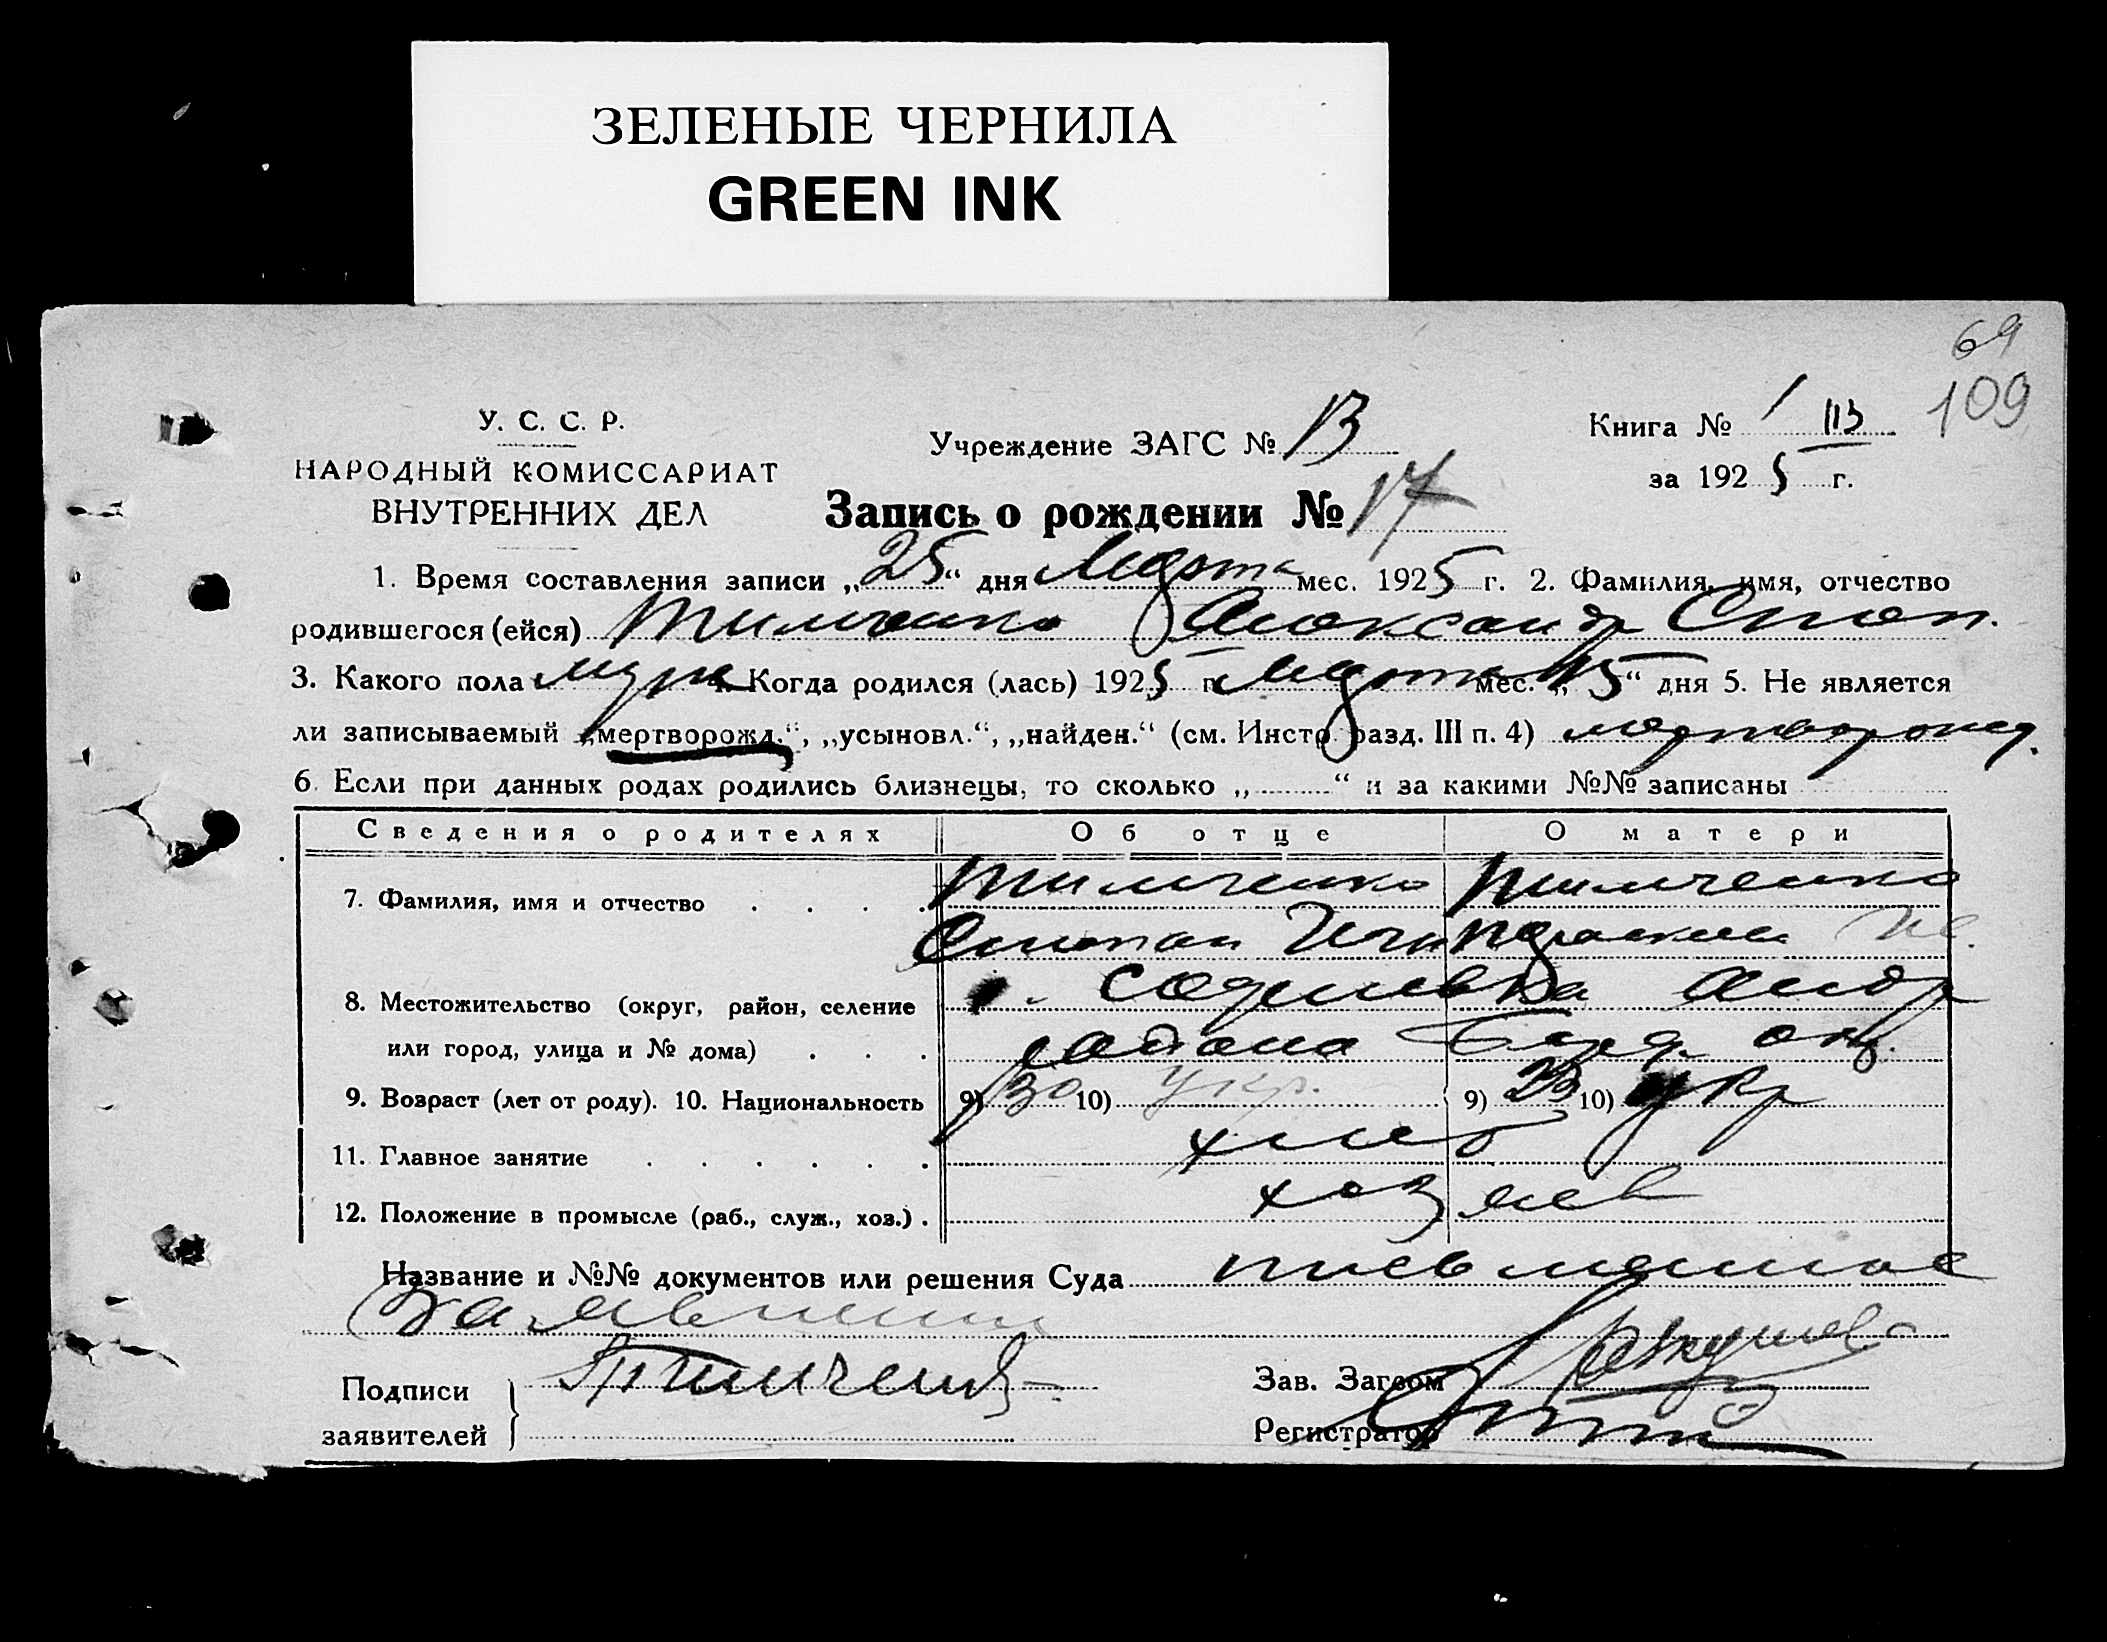 ЗЕЛЕНЫЕ ЧЕРНИЛА
GREEN INK
69
109
У. С. С. Р.
НАРОДНЫЙ КОМИССАРИАТ
ВНУТРЕННИХ ДЕЛ
Учреждение ЗАГС № 13
Книга № 1
за 1925 г.
Запись о рождении № 17
1. Время составления записи „25“ дня Марта мес. 1925 г. 2. Фамилия, имя, отчество
родившегося (ейся) Тимченко Александр Степ.
3. Какого пола муж 4. Когда родился (лась) 1925 г. Марта мес. „15“ дня 5. Не является
ли записываемый „мертворожд.“, „усыновл.“, „найден.“ (см. Инстр. разд. III п. 4) мертворожд.
6. Если при данных родах родились близнецы, то сколько „ “ и за какими №№ записаны
Сведения о родителях Об отце О матери
7. Фамилия, имя и отчество Тимченко Тимченко
Степан
8. Местожительство (округ, район, селение Андр
или город, улица и № дома) района окр.
9. Возраст (лет от роду). 10. Национальность 9) 30 10) укр. 9) 23 10) укр
11. Главное занятие хлеб
12. Положение в промысле (раб., служ., хоз.) хозяев
Название и №№ документов или решения Суда письменное
заявление
Подписи
заявителей
Зав. Загсом
Регистратор